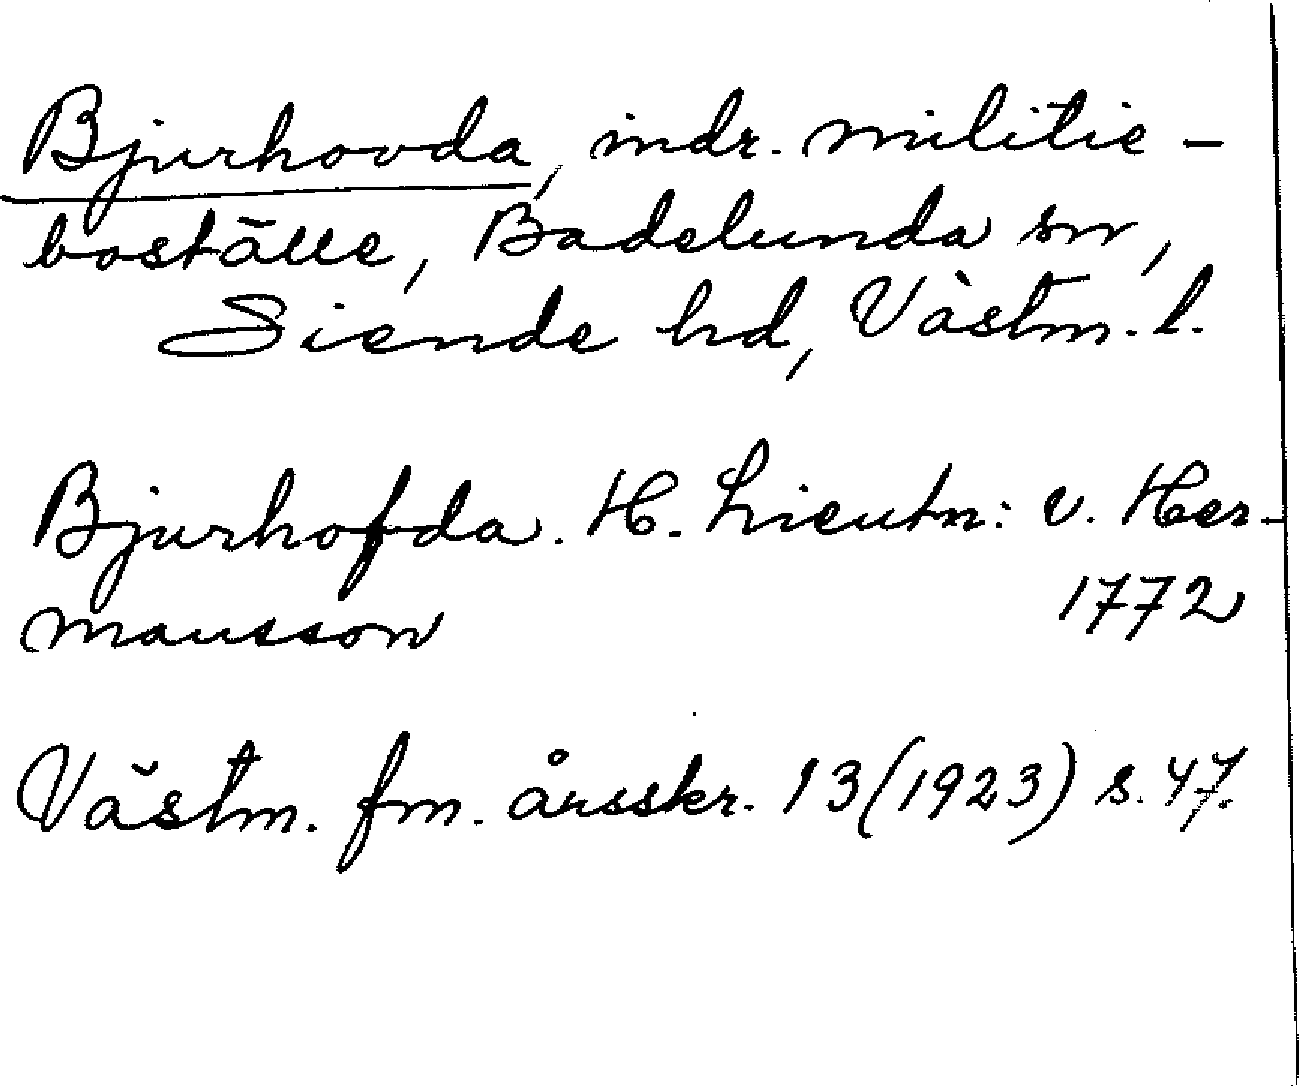 Bjurhovda, indr. militie-
boställe, Badelunda sn,
Siende hd, Västm. l.
Bjurhofda. H. Lieutn: v. Her-
mansson 1772
Västm. fm. årsskr. 13 (1923) s. 47.